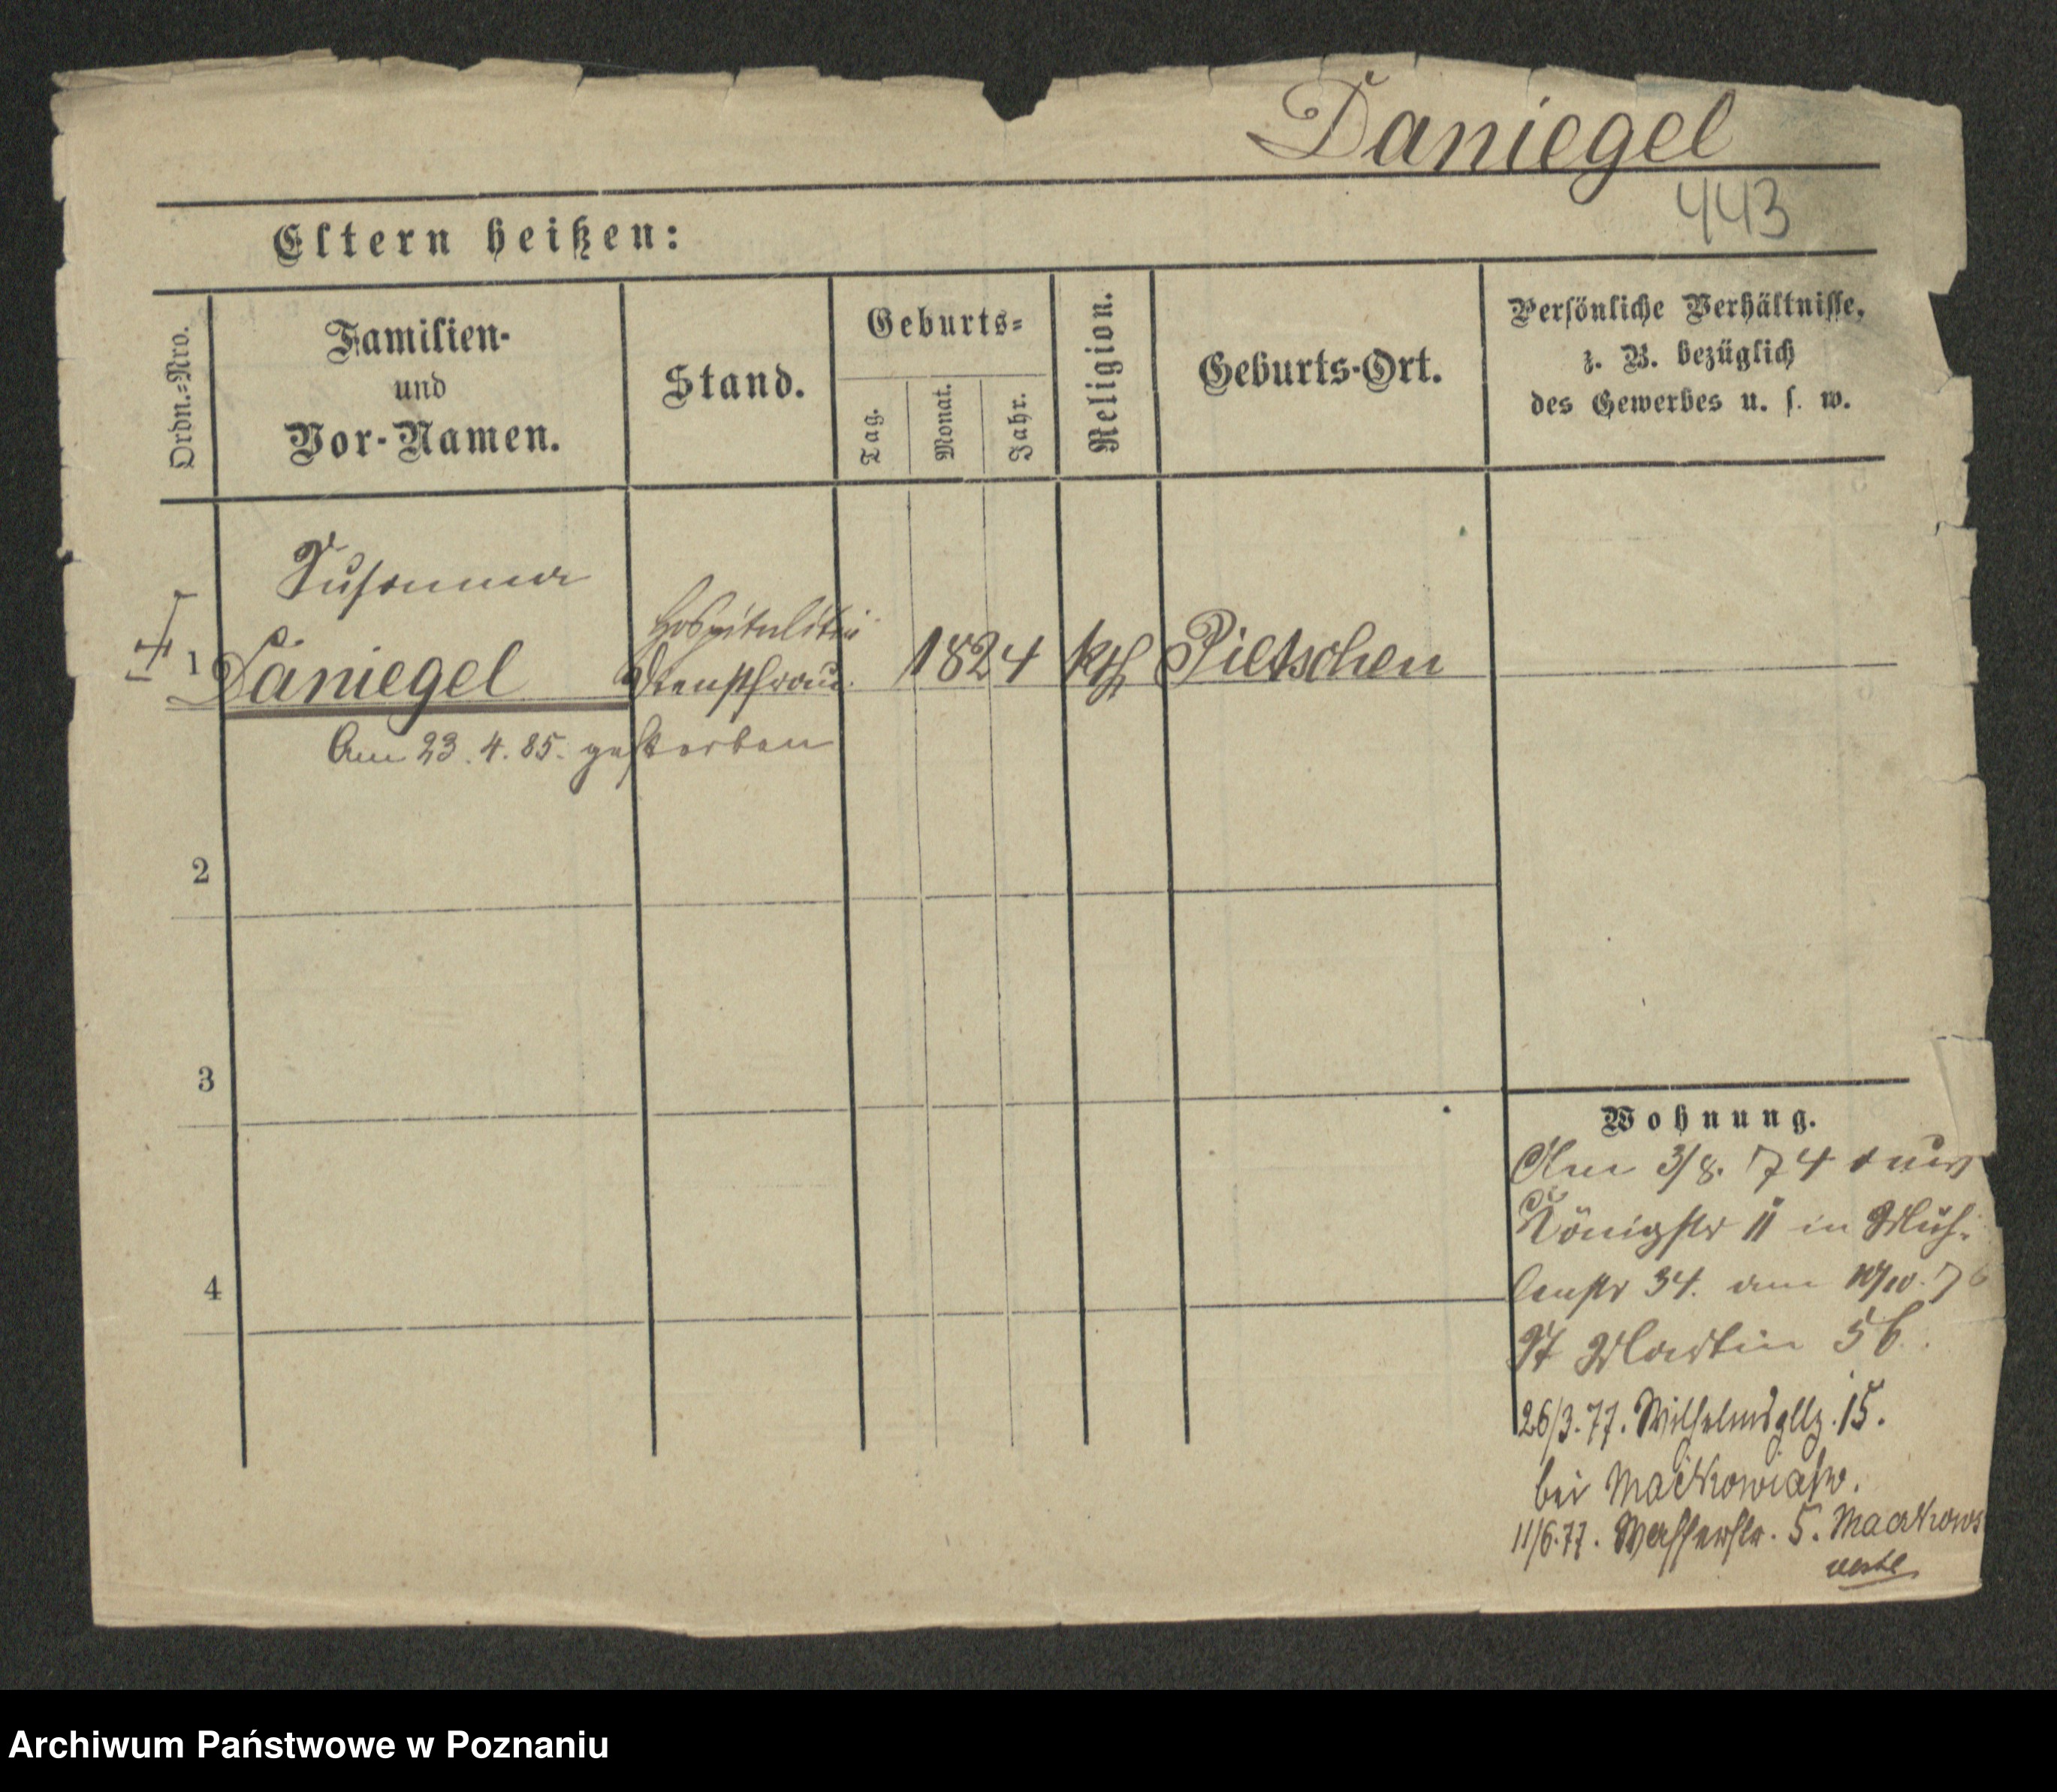 Daniegel
443
Eltern heißen:
Ordn.=Nro.
Familien-
und
Vor-Namen.
Stand.
Geburts=
Tag.
Monat.
Jahr.
Religion.
Geburts-Ort.
Persönliche Verhältnisse,
z. B. bezüglich
des Gewerbes u. s. w.
Susanna
Hospitalitin
1 Daniegel Dienstfrau. 1824 kth Pietschen
Am 23.4.85. gestorben
2
3
4
Wohnung.
Am 3/8. 74 aus
Königstr 11 in Müh-
lenstr 34. am 10/10. 76
St Martin 56.
26/3.77. Wilhelmsplz. 15.
bei
11/6.77. Wasserstr. 5.
Archiwum Państwowe w Poznaniu